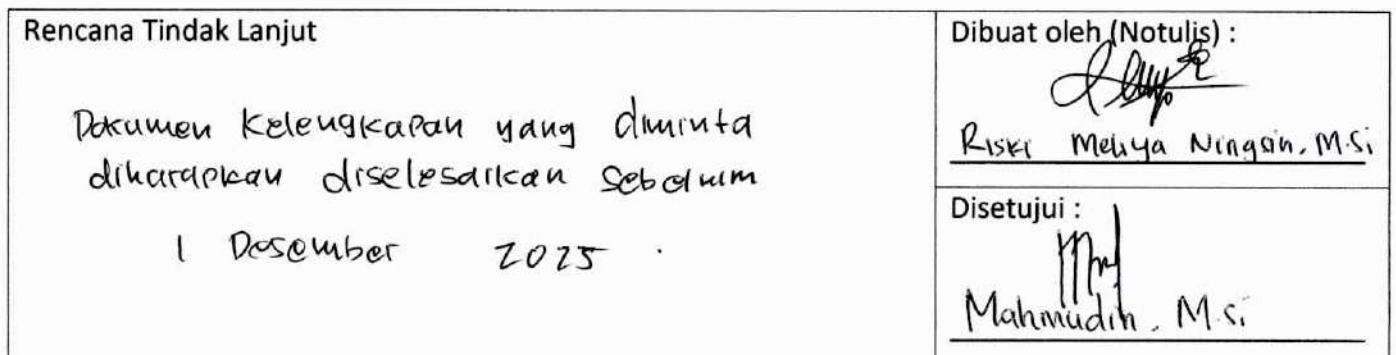 Rencana Tindak Lanjut
Dokumen Kelengkapan yang diminta
diharapkan diselesaikan Sebelum
1 Desember 2025.
Dibuat oleh (Notulis) :
Riski Meliya Ningsih, M.Si
Disetujui :
Mahmudin, M.Si